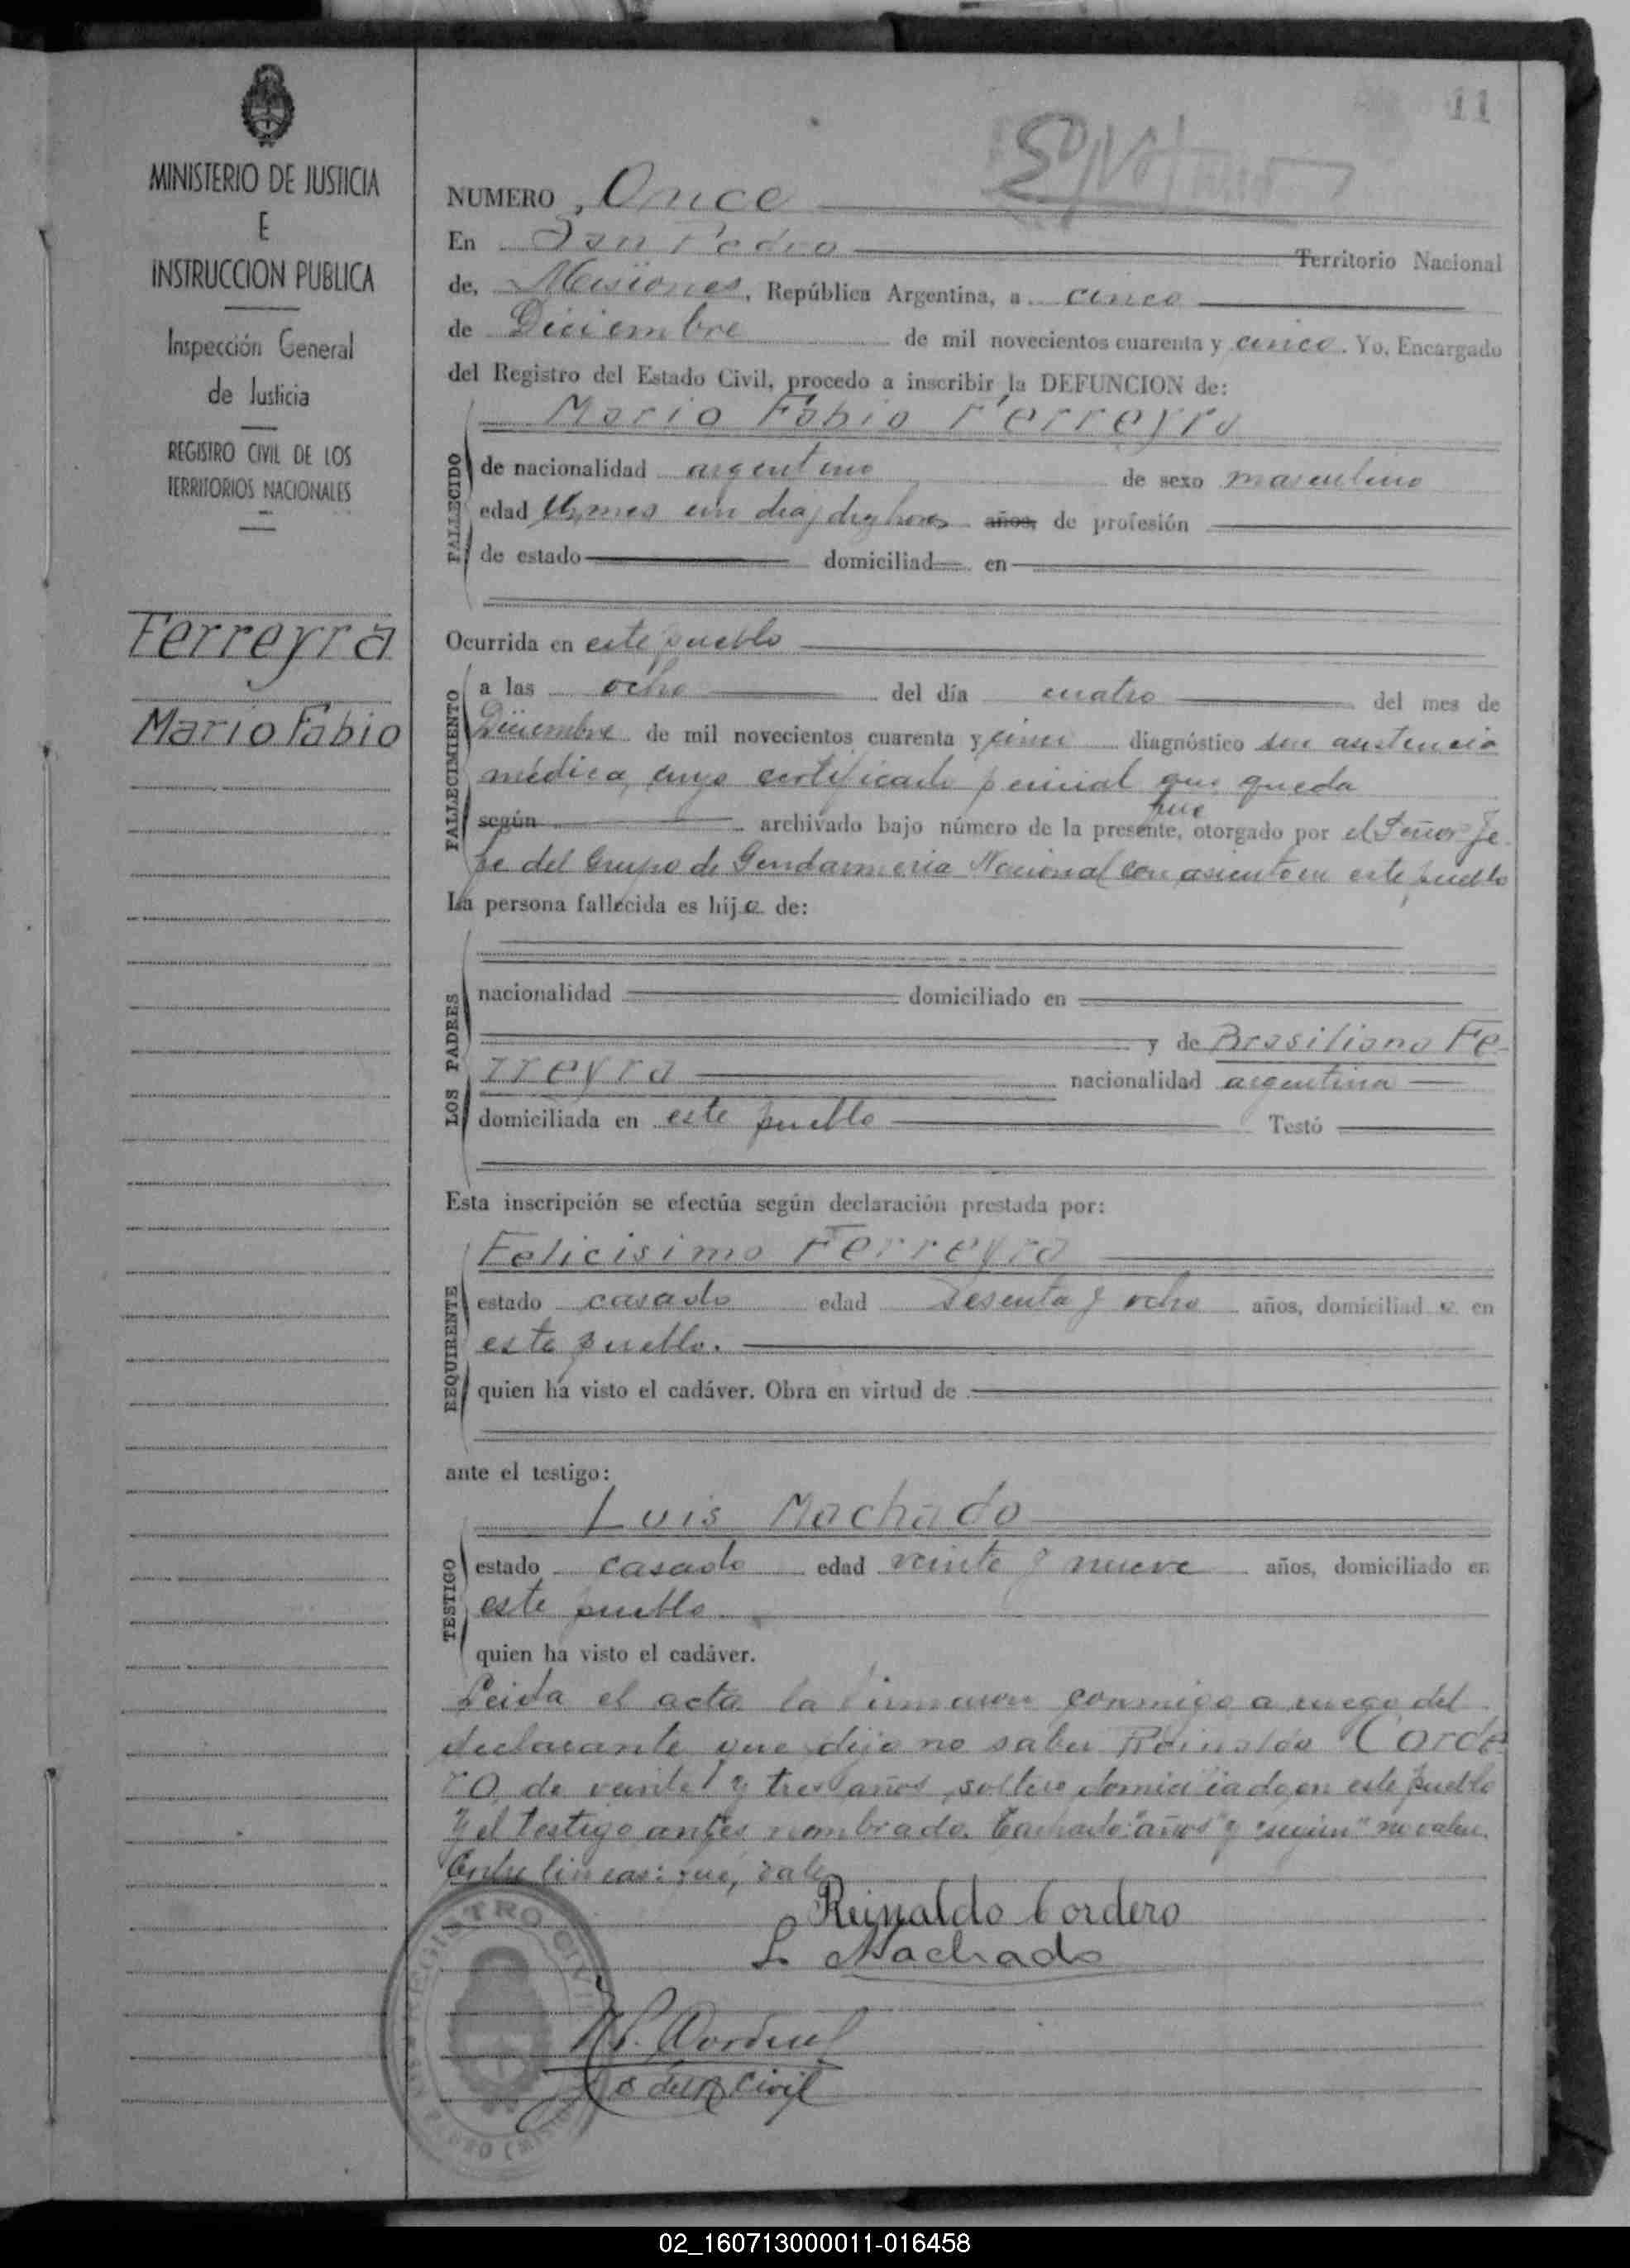 11
MINISTERIO DE JUSTICIA
E
INSTRUCCION PUBLICA
Inspección General
de Justicia
REGISTRO CIVIL DE LOS
TERRITORIOS NACIONALES
Ferreyra
Mario Fabio
NUMERO Once
En San Pedro Territorio Nacional
de, Misiones, República Argentina, a cinco
de Diciembre de mil novecientos cuarenta y cinco. Yo, Encargado
del Registro del Estado Civil, procedo a inscribir la DEFUNCION de:
Mario Fabio Ferreyra
FALLECIDO
de nacionalidad argentino de sexo masculino
edad mes un dia, horas años, de profesión
de estado domiciliad en
Ocurrida en este pueblo
FALLECIMIENTO
a las ocho del día cuatro del mes de
Diciembre de mil novecientos cuarenta y cinco diagnóstico sin asistencia
médica, cuyo certificado policial que queda
que
según archivado bajo número de la presente, otorgado por el Señor Je
fe del Grupo de Gendarmeria Nacional con asiento en este pueblo
La persona fallecida es hijo de:
LOS PADRES
nacionalidad domiciliado en
y de Brasiliana Fe-
rreyra nacionalidad argentina
domiciliada en este pueblo Testó
Esta inscripción se efectúa según declaración prestada por:
Felicisimo Ferreyra
REQUIRENTE
estado casado edad Sesenta y ocho años, domiciliado en
este pueblo.
quien ha visto el cadáver. Obra en virtud de
ante el testigo:
Luis Machado
TESTIGO
estado casado edad veinte y nueve años, domiciliado en
este pueblo
quien ha visto el cadáver.
Leida el acta la firmaron conmigo a ruego del
declarante que dijo no saber Reinaldo Corde
ro, de veinte y tres años, soltero domiciliado en este pueblo
y el testigo antes nombrado. Tachado: "años" y "según" no valen.
Entre lineas: que, vale
Reinaldo Cordero
L. Machado
REGISTRO CIVIL
del R. Civil
02_160713000011-016458